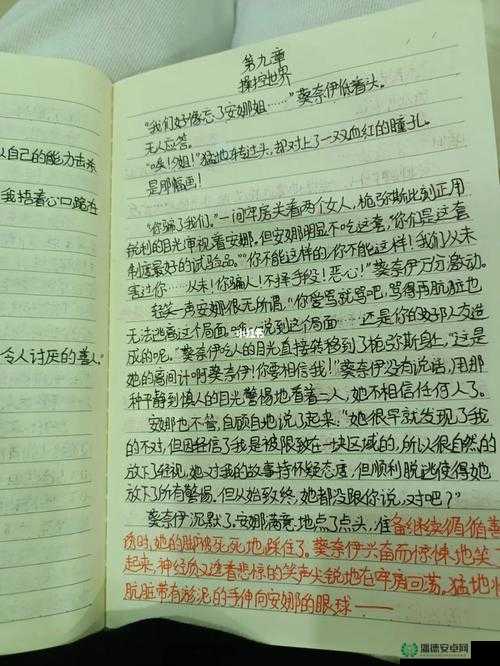 第九章
操控世界
"我们好像忘了安娜姐……"葵奈伊低着头。
无人应答。
"唉!夕姐!"猛地转过头,却对上了一双血红的瞳孔。
是那幅画!
"你骗了我们。"一间牢房关着两个女人,桅弥斯比到正用
锐利的目光审视着安娜,但安娜明显不吃这套,"你们是这套
制度最好的试验品。""你不能这样!你不能这样!我们从未
害过你……从未!你骗人!不择手段!恶心!"葵奈伊万分激动。
轻笑一声安娜很无所谓,"你爱骂就骂吧,骂得再肮脏也
无法逃离这个局面。
说到这个局面……还是你的好队友造
成的呢。"葵奈伊吃人的目光直接转移到了桅弥斯身上,"这是
她的离间计啊葵奈伊!你要相信我!"葵奈伊没有说话,用那
种平静到慎人的目光警惕地看着二人,她不相信任何人了。
安娜也不管,自顾自地说了起来:"她很早就发现了我
的不对,但因轻信了我是被限致在一块区域的,所以很自然的
放下了轻视,她对我的故事持怀疑态度,但顺利脱逃使得她
放下了所有警惕。但从始致终,她都没跟你说,对吧?"
葵奈伊沉默了。安娜满意地点了点头,准备继续循循善
诱时,她的脚被死死地踩住了。葵奈伊
而惊悚地笑
起来,神经质又透着悲惊的笑声尖锐地在牢房回荡。猛地将
肮脏带有淤泥的手伸向安娜的眼球——
以自己的能力去杀
我捂着心口跪在
令人讨厌的善人。"
小红书
潘德安卓网